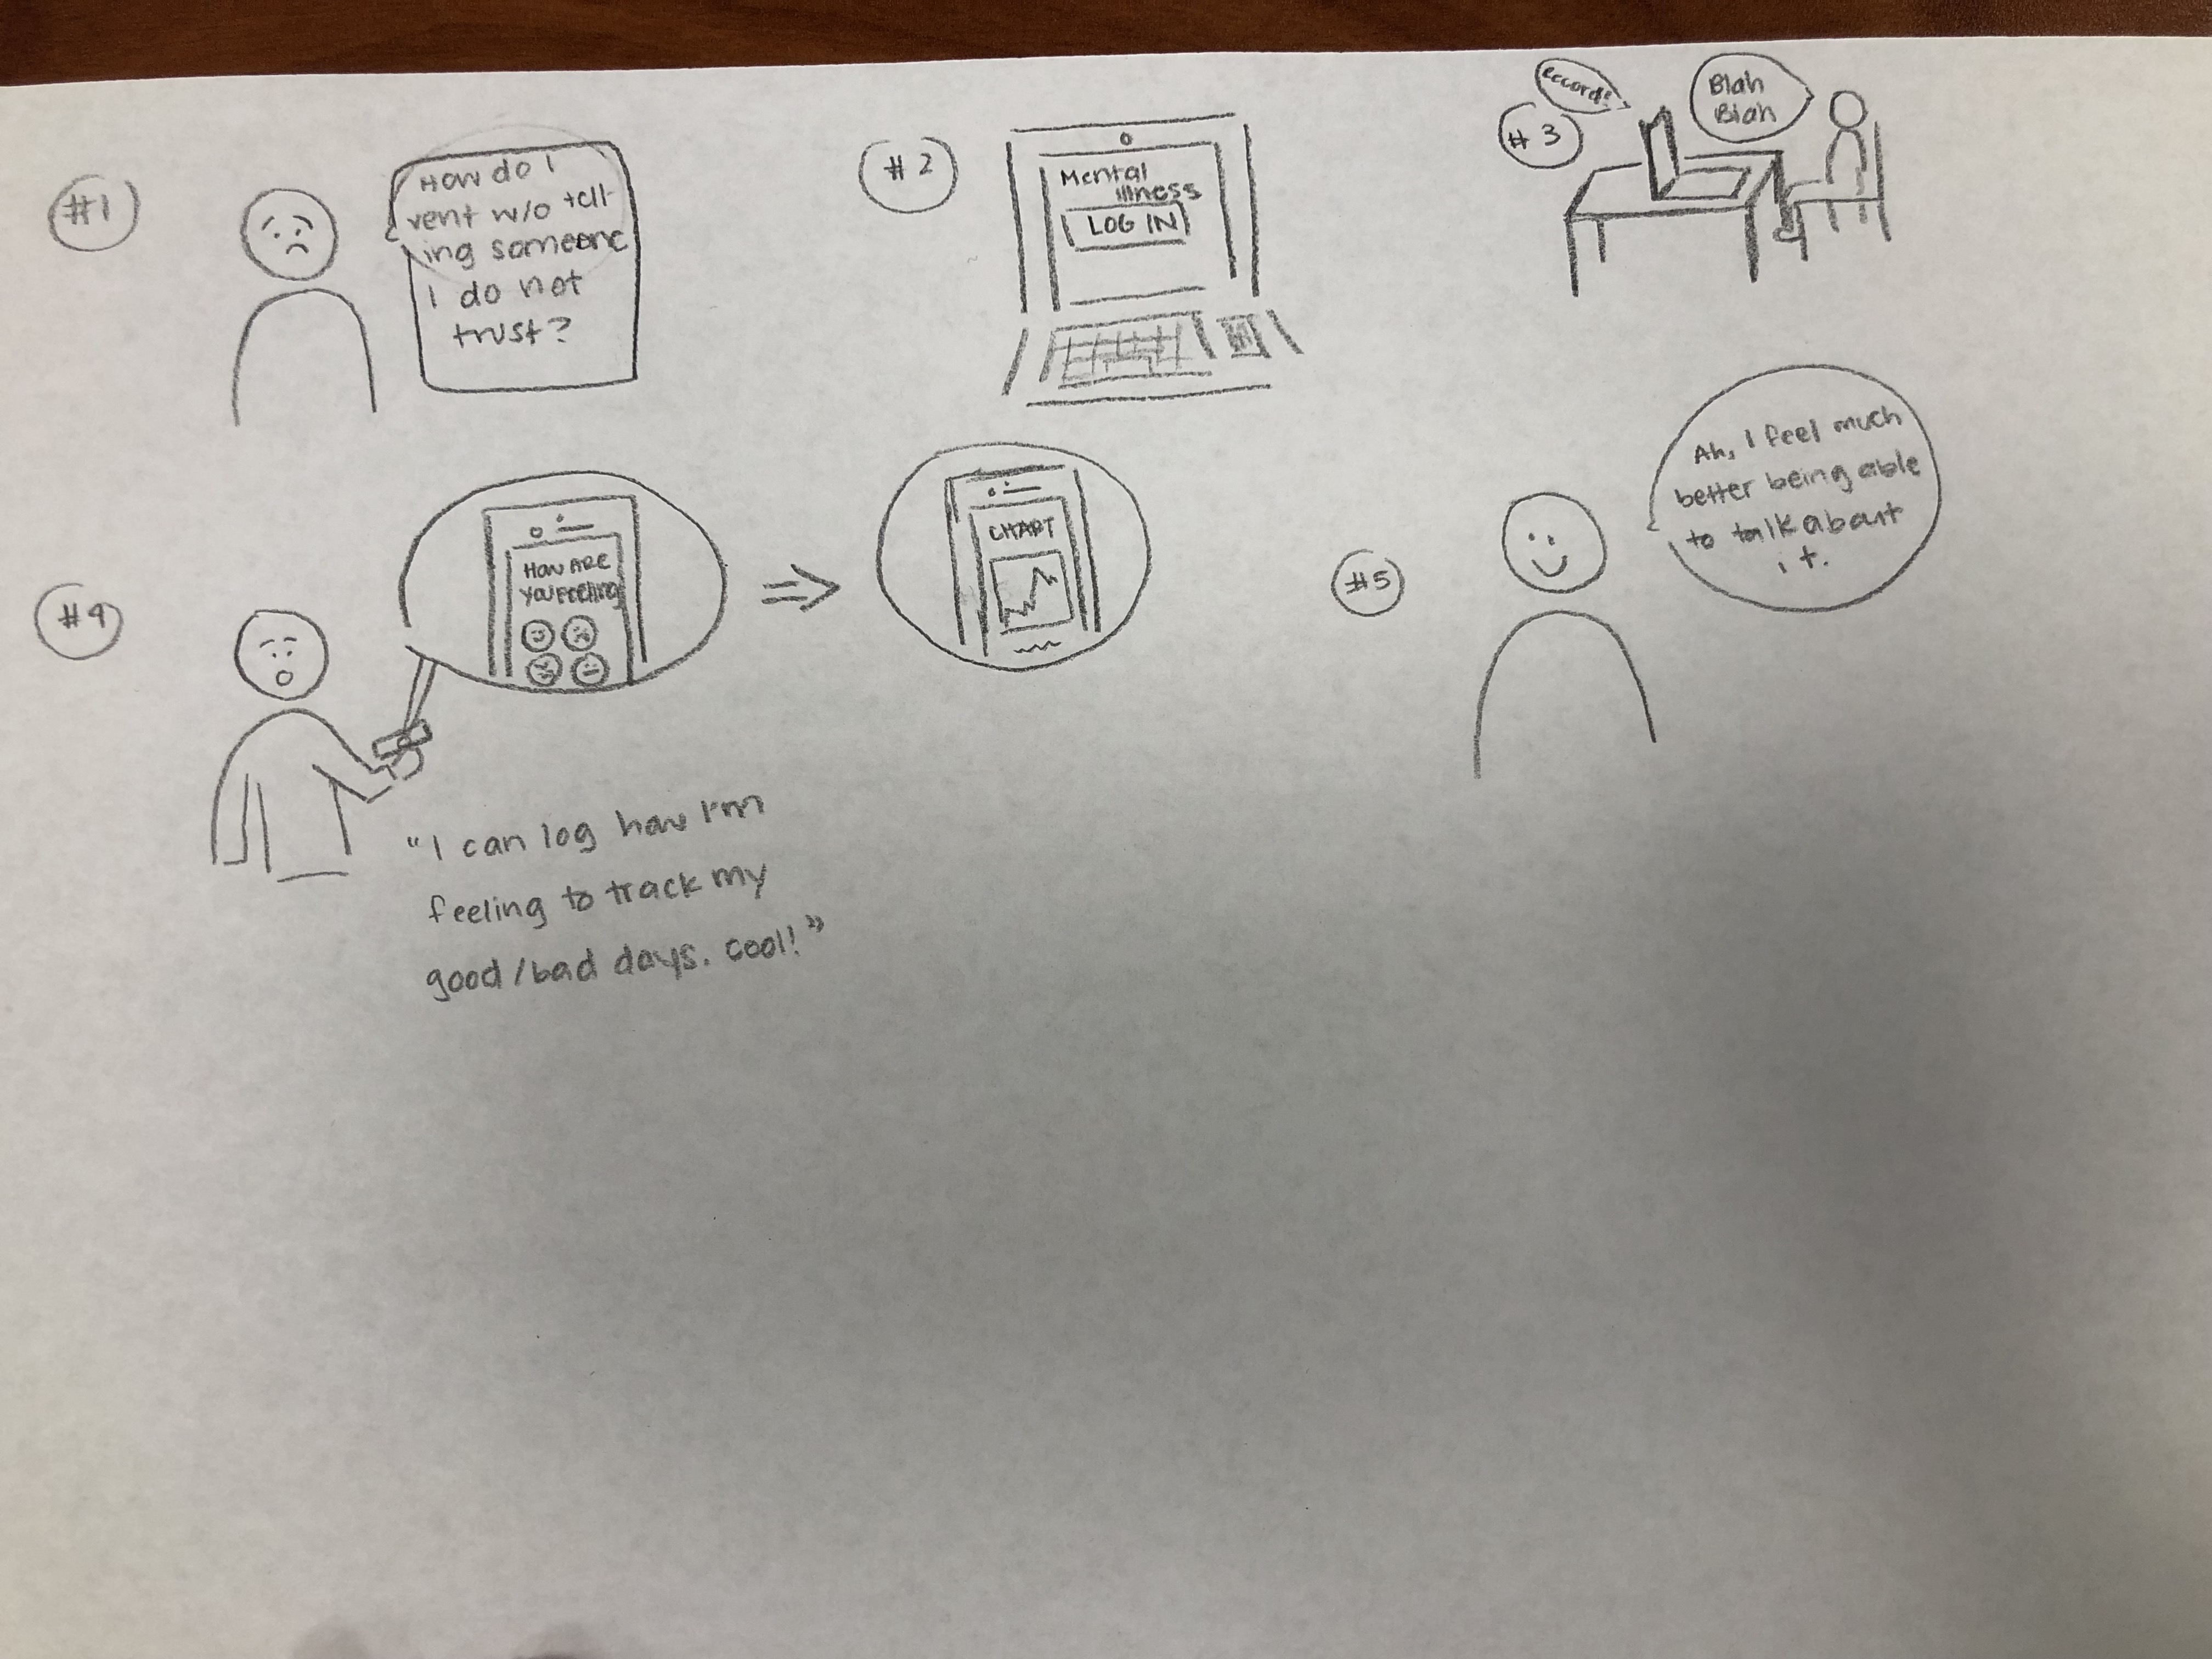 #1
How do I
vent w/o tell-
ing someone
I do not
trust?
#2
Mental
illness
LOG IN
#3
Blah
Blah
#4
HOW ARE
YOU FEELING
CHART
"I can log how I'm
feeling to track my
good/bad days. cool!"
#5
Ah, I feel much
better being able
to talk about
it.